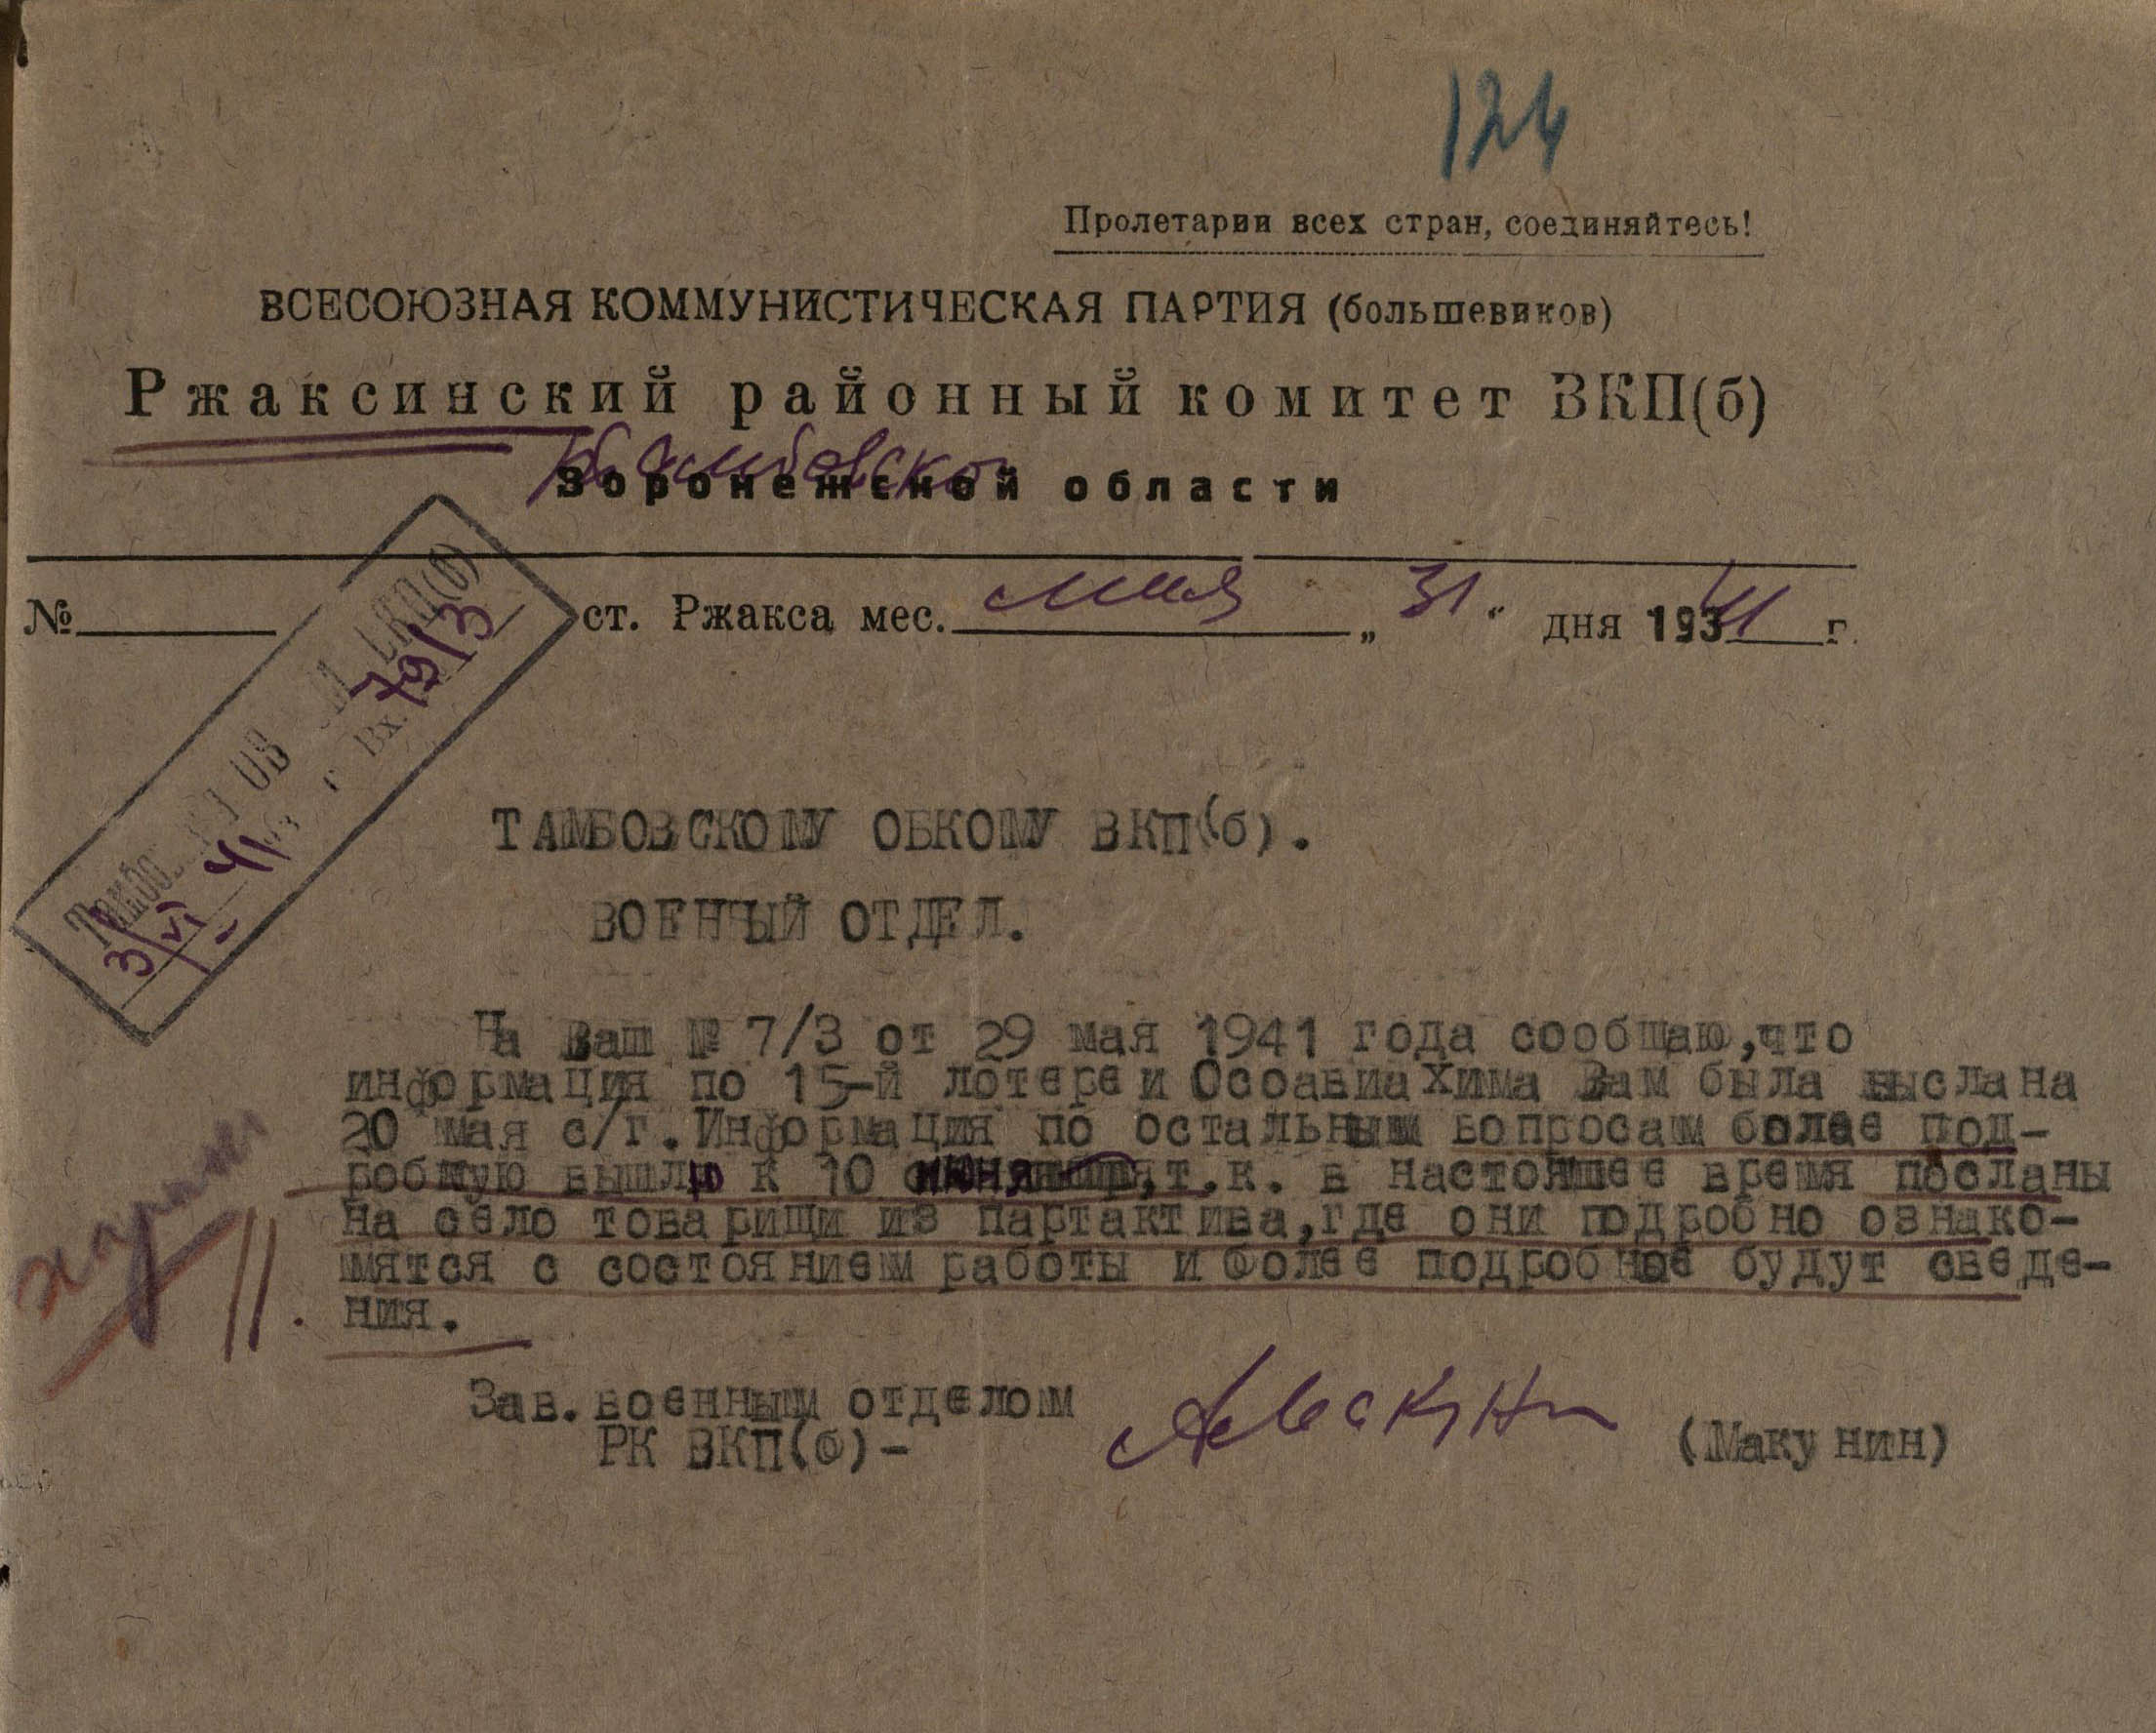 124
Пролетарии всех стран, соединяйтесь!
ВСЕСОЮЗНАЯ КОММУНИСТИЧЕСКАЯ ПАРТИЯ (большевиков)
Ржаксинский районный комитет ВКП(б)
Тамбовской
Воронежской области
№ ст. Ржакса мес. мая „ 31 “ дня 1941 г.
ВКП(б)
3/VI 41 г. Вх. 79/3
ТАМБОВСКОМУ ОБКОМУ ВКП(б).
ВОЕННЫЙ ОТДЕЛ.
На Ваш № 7/3 от 29 мая 1941 года сообщаю,что
информация по 15-й лотереи Осоавиахима Вам была выслана
20 мая с/г. Информация по остальным вопросам более под-
робную вышлю к 10 июня,т.к. в настоящее время посланы
на село товарищи из партактива,где они подробно ознако-
мятся с состоянием работы и более подробнее будут сведе-
ния.
Зав.военным отделом
РК ВКП(б)- (Макунин)